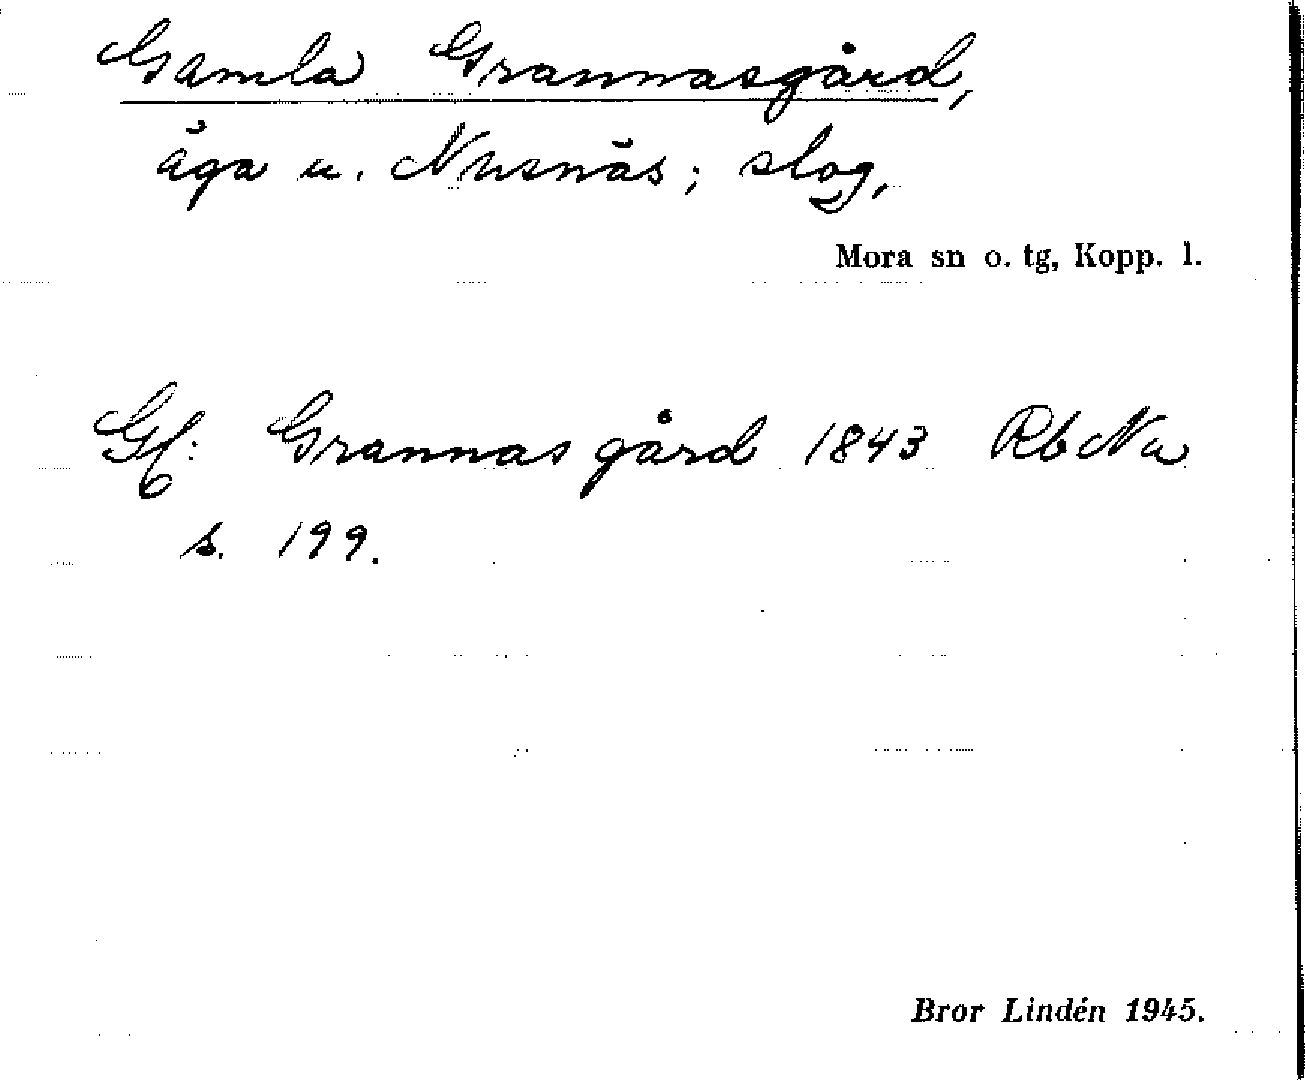 Gamla Grannasgård,
äga u. Nusnäs; slog,
Mora sn o. tg, Kopp. l.
Gf: Grannas gård 1843 Rb Nu
s. 199.
Bror Lindén 1945.